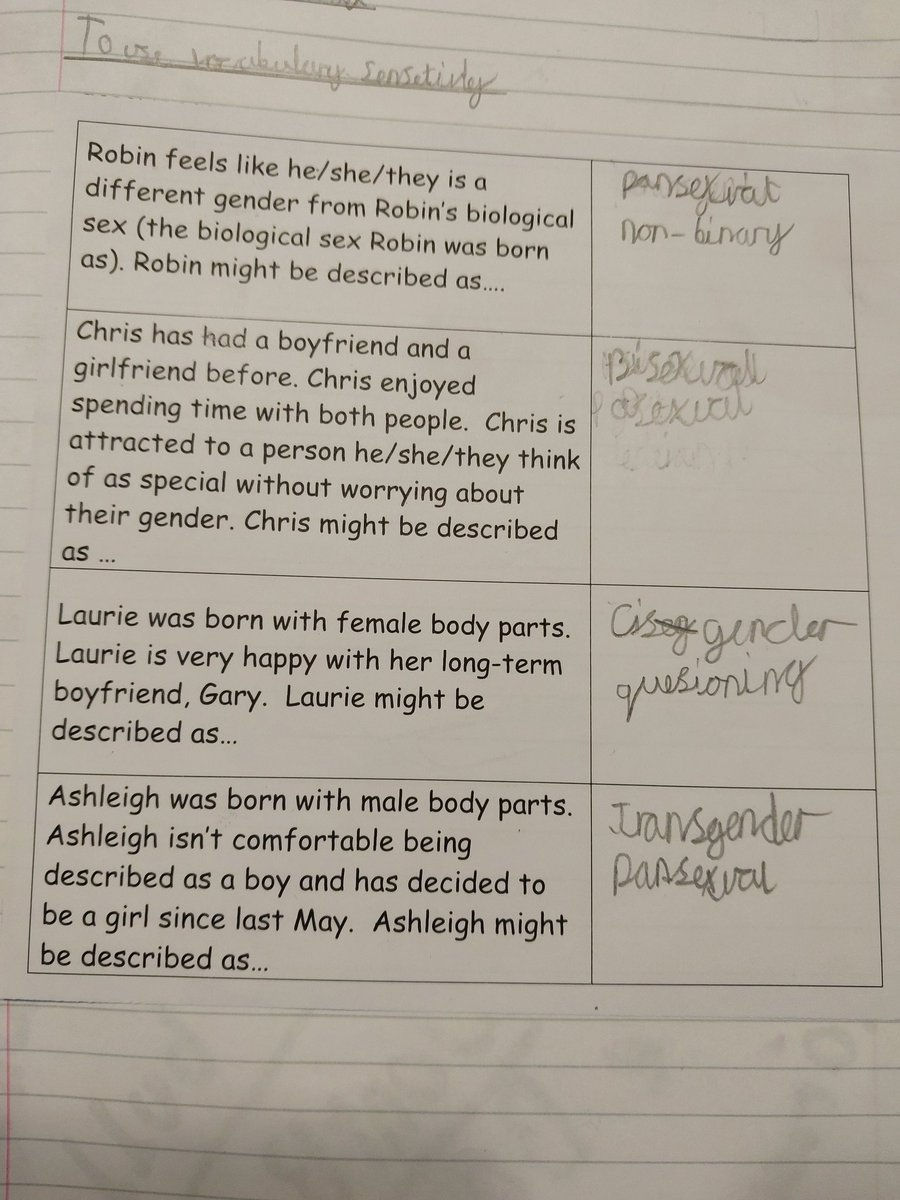 To use vocabulary sensetivly
Robin feels like he/she/they is a
different gender from Robin's biological
sex (the biological sex Robin was born
as). Robin might be described as....
pansexual
non-binary
Chris has had a boyfriend and a
girlfriend before. Chris enjoyed
spending time with both people. Chris is
attracted to a person he/she/they think
of as special without worrying about
their gender. Chris might be described
as ...
Bisexual
asexual
Laurie was born with female body parts.
Laurie is very happy with her long-term
boyfriend, Gary. Laurie might be
described as...
Cis gender
quesioning
Ashleigh was born with male body parts.
Ashleigh isn't comfortable being
described as a boy and has decided to
be a girl since last May. Ashleigh might
be described as...
Transgender
pansexual